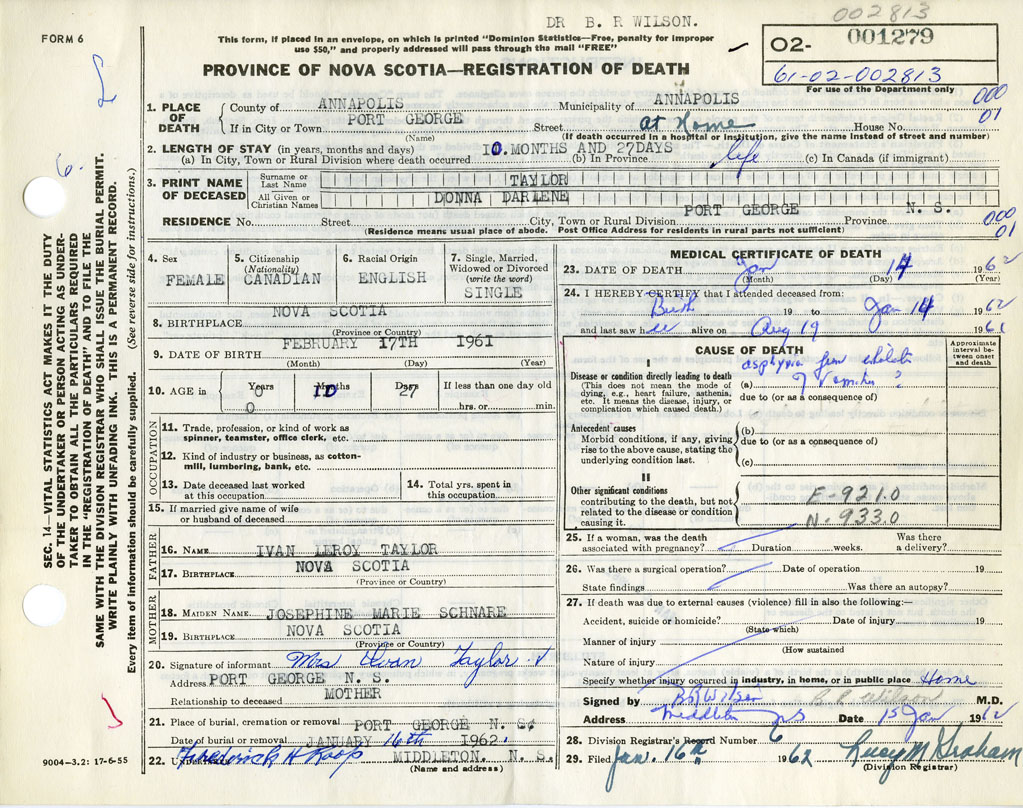 DR B. R WILSON.
002813
FORM 6
This form, if placed in an envelope, on which is printed "Dominion Statistics—Free, penalty for improper
use $50," and properly addressed will pass through the mail "FREE"
O2- 001279
61-02-002813
For use of the Department only
PROVINCE OF NOVA SCOTIA—REGISTRATION OF DEATH
000
01
1. PLACE OF DEATH
County of ANNAPOLIS Municipality of ANNAPOLIS
If in City or Town PORT GEORGE Street at Home House No.
(Name) (If death occurred in a hospital or institution, give the name instead of street and number)
2. LENGTH OF STAY (in years, months and days)
(a) In City, Town or Rural Division where death occurred 10. MONTHS AND 27DAYS (b) In Province life (c) In Canada (if immigrant)
3. PRINT NAME OF DECEASED
Surname or Last Name TAYLOR
All Given or Christian Names DONNA DARLENE
RESIDENCE No. Street City, Town or Rural Division PORT GEORGE Province N. S.
(Residence means usual place of abode. Post Office Address for residents in rural parts not sufficient)
000
01
4. Sex
FEMALE
5. Citizenship
(Nationality)
CANADIAN
6. Racial Origin
ENGLISH
7. Single, Married,
Widowed or Divorced
(write the word)
SINGLE
8. BIRTHPLACE NOVA SCOTIA
(Province or Country)
9. DATE OF BIRTH FEBRUARY 17TH 1961
(Month) (Day) (Year)
10. AGE in Years Months Days If less than one day old
0 10 27 hrs. or min.
OCCUPATION
11. Trade, profession, or kind of work as
spinner, teamster, office clerk, etc.
12. Kind of industry or business, as cotton-
mill, lumbering, bank, etc.
13. Date deceased last worked
at this occupation
14. Total yrs. spent in
this occupation
15. If married give name of wife
or husband of deceased
FATHER
16. NAME IVAN LEROY TAYLOR
17. BIRTHPLACE NOVA SCOTIA
(Province or Country)
MOTHER
18. MAIDEN NAME JOSEPHINE MARIE SCHNARE
19. BIRTHPLACE NOVA SCOTIA
(Province or Country)
20. Signature of informant Mrs Ivan Taylor
Address PORT GEORGE N. S.
Relationship to deceased MOTHER
21. Place of burial, cremation or removal PORT GEORGE N. S.
Date of burial or removal JANUARY 16th 1962.
22. Frederick H Roop MIDDLETON, N. S.
(Name and address)
9004-3.2: 17-6-55
MEDICAL CERTIFICATE OF DEATH
23. DATE OF DEATH Jan 14 1962
(Month) (Day) (Year)
24. I HEREBY CERTIFY that I attended deceased from:
Birth 19 to Jan 14 1962
and last saw h er alive on Aug 19 1961
CAUSE OF DEATH
Approximate
interval be-
tween onset
and death
I
Disease or condition directly leading to death
(This does not mean the mode of
dying, e.g., heart failure, asthenia,
etc. It means the disease, injury, or
complication which caused death.)
asphyxia from
(a) of Vomitus ?
due to (or as a consequence of)
Antecedent causes
Morbid conditions, if any, giving
rise to the above cause, stating the
underlying condition last.
(b)
due to (or as a consequence of)
(c)
II
Other significant conditions
contributing to the death, but not
related to the disease or condition
causing it.
E-921.0
N-933.0
25. If a woman, was the death
associated with pregnancy? Duration weeks. Was there
a delivery?
26. Was there a surgical operation? Date of operation 19
State findings Was there an autopsy?
27. If death was due to external causes (violence) fill in also the following:—
Accident, suicide or homicide? Date of injury 19
(State which)
Manner of injury
(How sustained
Nature of injury
Specify whether injury occurred in industry, in home, or in public place Home
Signed by BRWilson B. R. Wilson M.D.
Address Middleton NS Date 15 Jan 1962
28. Division Registrar's Record Number 6
29. Filed Jan. 16th 1962 Lucy M Graham
(Division Registrar)
SEC. 14—VITAL STATISTICS ACT MAKES IT THE DUTY
OF THE UNDERTAKER OR PERSON ACTING AS UNDER-
TAKER TO OBTAIN ALL THE PARTICULARS REQUIRED
IN THE "REGISTRATION OF DEATH" AND TO FILE THE
SAME WITH THE DIVISION REGISTRAR WHO SHALL ISSUE THE BURIAL PERMIT.
WRITE PLAINLY WITH UNFADING INK. THIS IS A PERMANENT RECORD.
Every item of information should be carefully supplied. (See reverse side for instructions.)
6.